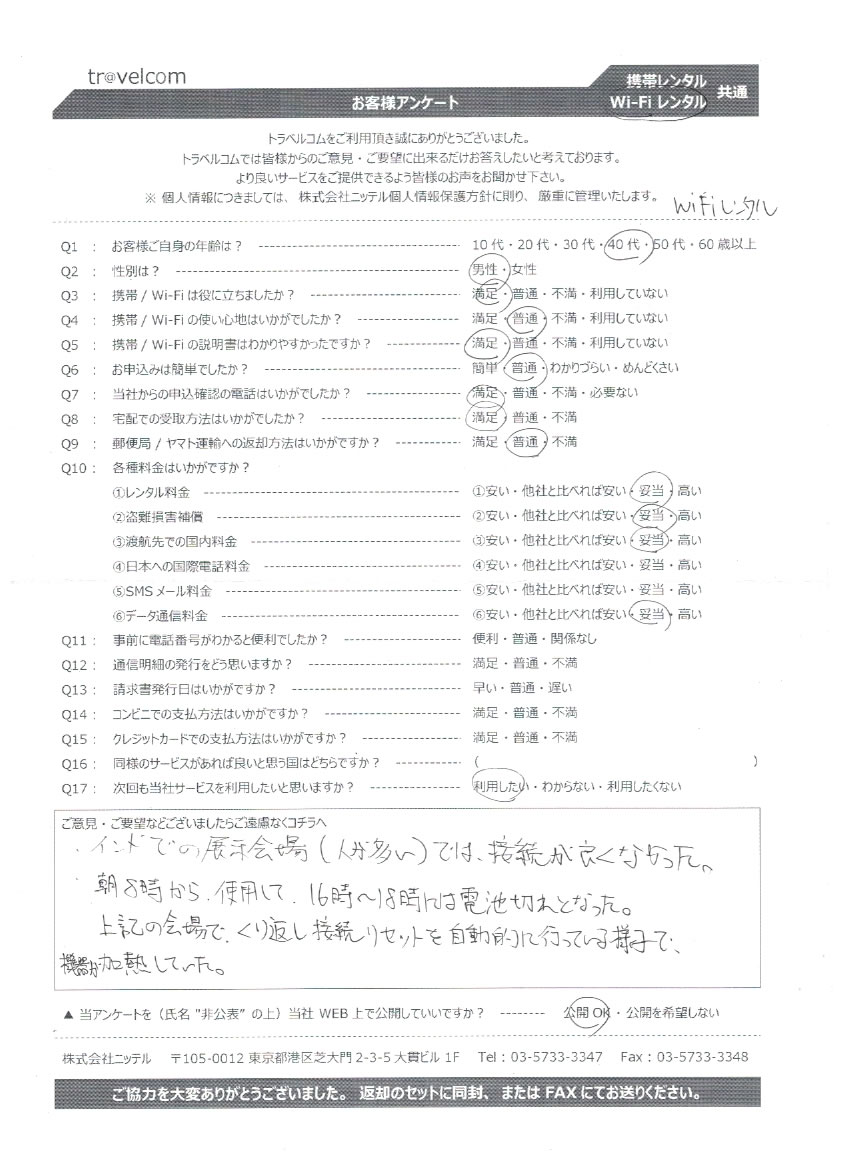 tr@velcom
携帯レンタル
Wi-Fi レンタル
共通
お客様アンケート
トラベルコムをご利用頂き誠にありがとうございました。
トラベルコムでは皆様からのご意見・ご要望に出来るだけお答えしたいと考えております。
より良いサービスをご提供できるよう皆様のお声をお聞かせ下さい。
※ 個人情報につきましては、株式会社ニッテル個人情報保護方針に則り、厳重に管理いたします。
WiFiレンタル
Q1 : お客様ご自身の年齢は? 10代・20代・30代・40代・50代・60歳以上
Q2 : 性別は? 男性・女性
Q3 : 携帯 / Wi-Fi は役に立ちましたか? 満足・普通・不満・利用していない
Q4 : 携帯 / Wi-Fi の使い心地はいかがでしたか? 満足・普通・不満・利用していない
Q5 : 携帯 / Wi-Fi の説明書はわかりやすかったですか? 満足・普通・不満・利用していない
Q6 : お申込みは簡単でしたか? 簡単・普通・わかりづらい・めんどくさい
Q7 : 当社からの申込確認の電話はいかがでしたか? 満足・普通・不満・必要ない
Q8 : 宅配での受取方法はいかがでしたか? 満足・普通・不満
Q9 : 郵便局 / ヤマト運輸への返却方法はいかがですか? 満足・普通・不満
Q10 : 各種料金はいかがですか?
①レンタル料金 ①安い・他社と比べれば安い・妥当・高い
②盗難損害補償 ②安い・他社と比べれば安い・妥当・高い
③渡航先での国内料金 ③安い・他社と比べれば安い・妥当・高い
④日本への国際電話料金 ④安い・他社と比べれば安い・妥当・高い
⑤SMS メール料金 ⑤安い・他社と比べれば安い・妥当・高い
⑥データ通信料金 ⑥安い・他社と比べれば安い・妥当・高い
Q11 : 事前に電話番号がわかると便利でしたか? 便利・普通・関係なし
Q12 : 通信明細の発行をどう思いますか? 満足・普通・不満
Q13 : 請求書発行日はいかがですか? 早い・普通・遅い
Q14 : コンビニでの支払方法はいかがですか? 満足・普通・不満
Q15 : クレジットカードでの支払方法はいかがですか? 満足・普通・不満
Q16 : 同様のサービスがあれば良いと思う国はどちらですか? ( )
Q17 : 次回も当社サービスを利用したいと思いますか? 利用したい・わからない・利用したくない
ご意見・ご要望などございましたらご遠慮なくコチラへ
・インドでの展示会場(人が多い)では、接続が良くなかった。
・朝8時から、使用して、16時〜18時には電池切れとなった。
上記の会場で、くり返し接続リセットを自動的に行っている様子で、
機器が加熱していた。
▲ 当アンケートを(氏名 "非公表" の上)当社 WEB 上で公開していいですか? 公開 OK・公開を希望しない
株式会社ニッテル 〒105-0012 東京都港区芝大門 2-3-5 大貫ビル 1F Tel : 03-5733-3347 Fax : 03-5733-3348
ご協力を大変ありがとうございました。返却のセットに同封、または FAX にてお送りください。